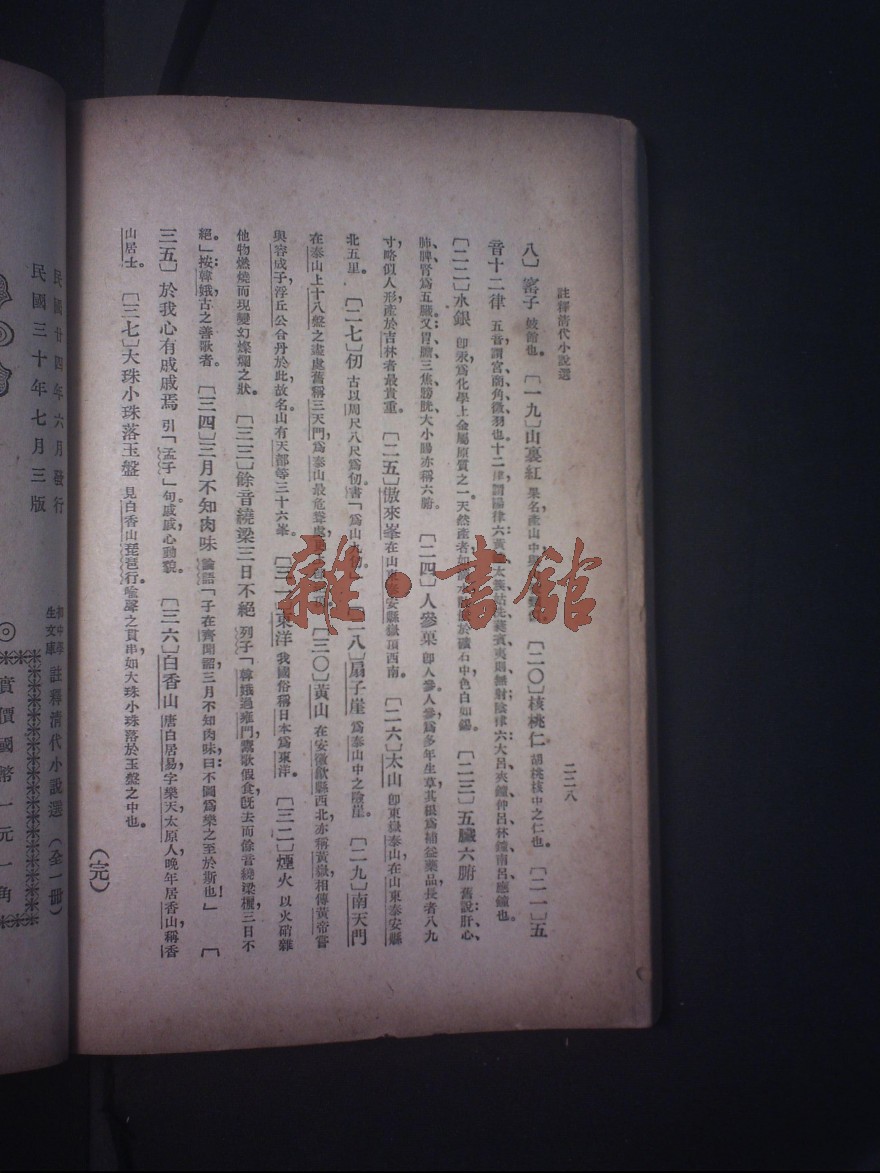 註釋清代小說選
二二八
八〕窰子 妓館也。〔一九〕山裏紅 果名，產山中，〔二〇〕核桃仁 胡桃核中之仁也。〔二一〕五
音十二律 五音謂宮、商、角、徵、羽也。十二律謂陽律六：黃、大蔟、姑洗、蕤賓、夷則、無射；陰律六：大呂、夾鐘、仲呂、林鐘、南呂、應鐘也。
〔二二〕水銀 卽汞，爲化學上金屬原質之一，天然產者，於礦石中，色白如錫。〔二三〕五臟六腑 舊說肝、心、
肺、脾、腎爲五臟；又胃、膽、三焦、膀胱、大小腸亦稱六腑。〔二四〕人參菓 卽人參。人參爲多年生草，其根爲補益藥品，長者八九
寸，略似人形，產於吉林者最貴重。〔二五〕傲來峯 在山東泰安縣嶽頂西南。〔二六〕太山 卽東嶽泰山，在山東泰安縣
北五里。〔二七〕仞 古以周尺八尺爲仞。書「爲山九仞。」〔二八〕扇子崖 爲泰山中之險崖。〔二九〕南天門
在泰山上十八盤之盡處，舊稱三天門，爲泰山最危聳處，〔三〇〕黃山 在安徽歙縣西北，亦稱黃嶽，相傳黃帝嘗
與容成子、浮丘公合丹於此，故名。山有天都等三十六峯。〔三一〕東洋 我國俗稱日本爲東洋。〔三二〕煙火 以火硝雜
他物燃燒而現變幻燦爛之狀。〔三三〕餘音繞梁三日不絕 列子「韓娥過雍門，鬻歌假食，旣去而餘音繞梁欐，三日不
絕。」按：韓娥，古之善歌者。〔三四〕三月不知肉味 論語「子在齊聞韶，三月不知肉味，曰：不圖爲樂之至於斯也！」〔
三五〕於我心有戚戚焉 引「孟子」句。戚戚，心動貌。〔三六〕白香山 唐白居易字樂天，太原人，晚年居香山，稱香
山居士。〔三七〕大珠小珠落玉盤 見白香山琵琶行。喻聲之貫串，如大珠小珠落於玉盤之中也。
（完）
民國廿四年六月發行
民國三十年七月三版
初中學
生文庫
註釋清代小說選（全一冊）
實價國幣一元一角
雜·書館